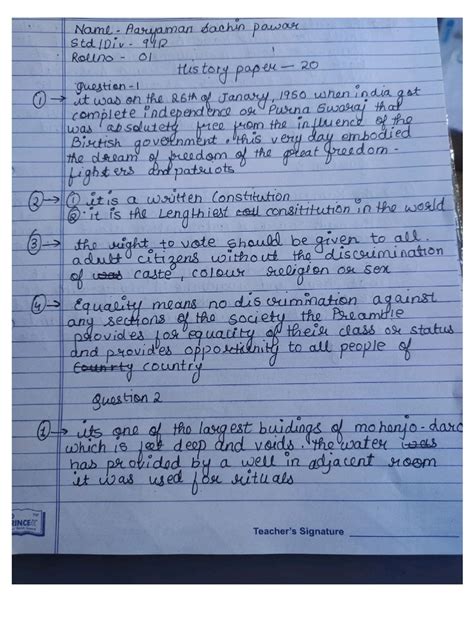 Name - Aaryaman Sachin pawar
Std/Div -
Rollno - 01
History paper - 20
Question - 1
① → it was on the 26th of Janary, 1950 when india got
complete independence or Purna Swaraj that
was absolutely free from the influence of the
Birtish government. this very day embodied
the dream of freedom of the great freedom -
fighters and patriots
② → ① it is a written Constitution
② it is the Lengthiest consititution in the world
③ → the right to vote should be given to all
adult citizens without the discrimination
of was caste, colour religion or sex
④ → Equality means no discrumination against
any sections of the society the Preamble
provides for equality of their class or status
and provides opportunity to all people of
Counrty country
Question 2
① → its one of the largest buidings of mohenjo-daro
which is deep and voids. the water was
has provided by a well in adjacent room
it was used for rituals
Teacher's Signature